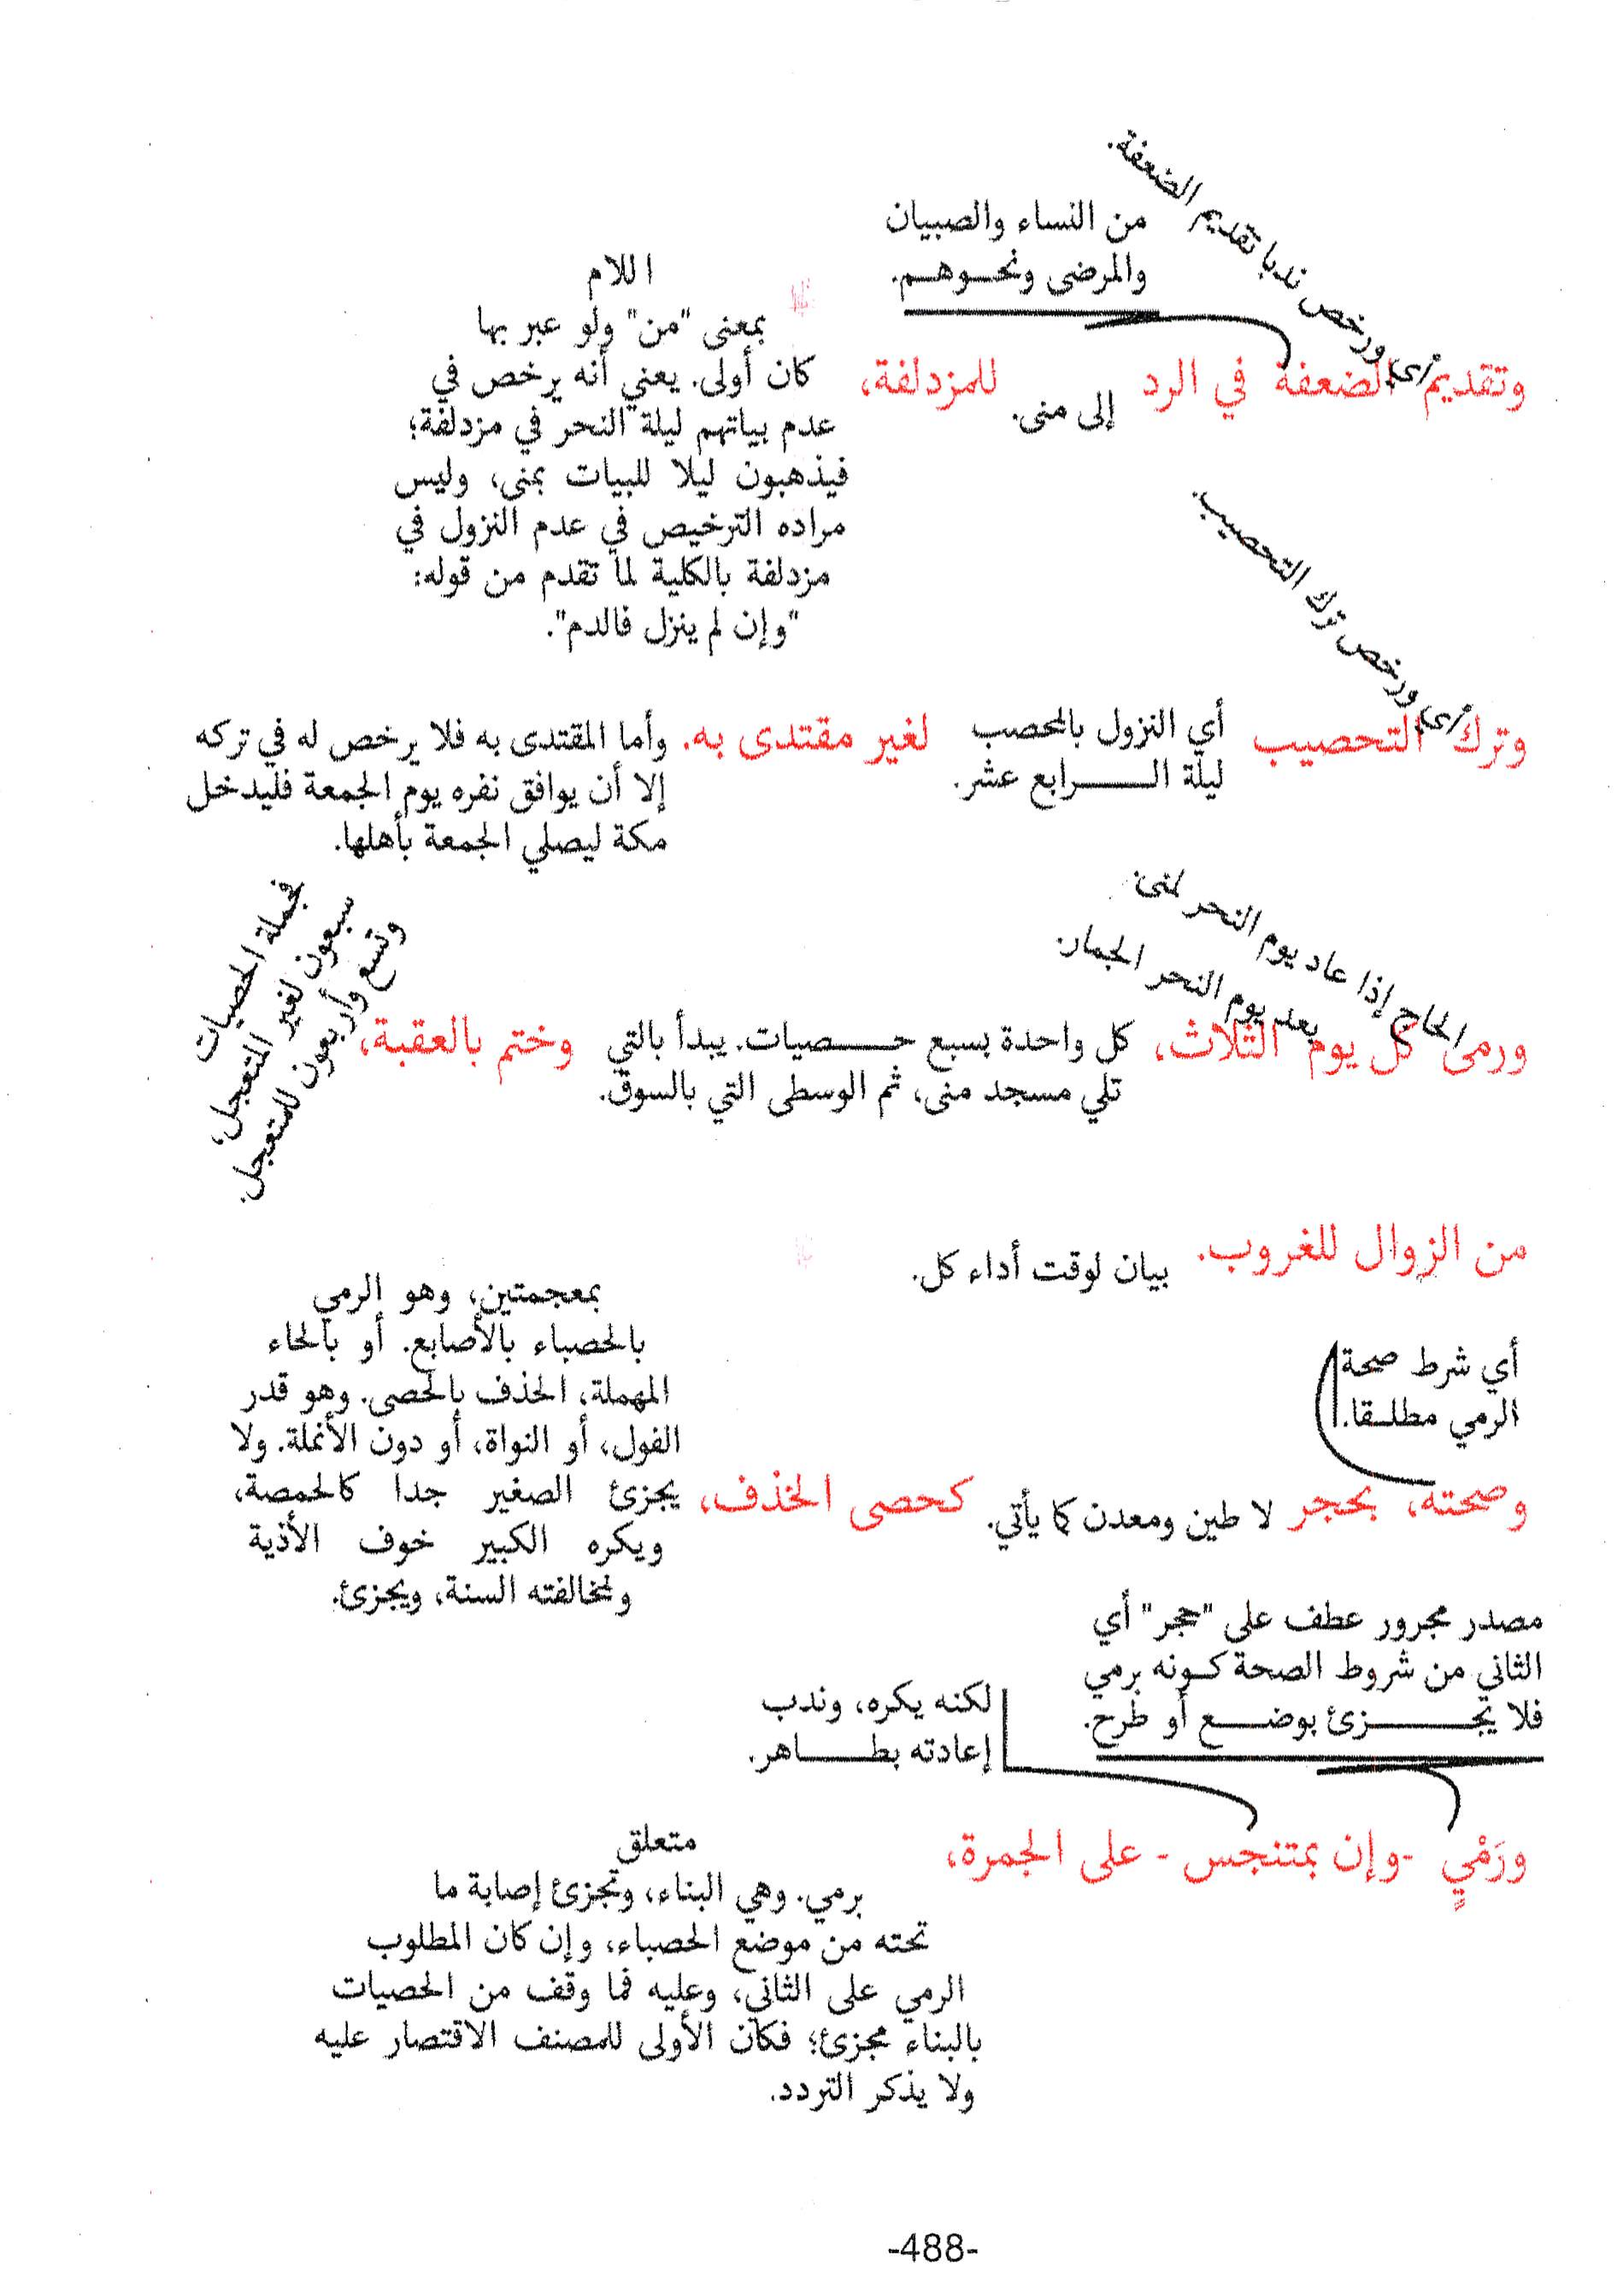 أي ورخص ندبا تقديم الضعفة.
من النساء والصبيان
والمرضى ونحوهم.
وتقديم الضعفة في الرد
إلى منى.
للمزدلفة،
اللام
بمعنى "من" ولو عبر بها
كان أولى. يعني أنه يرخص في
عدم بياتهم ليلة النحر في مزدلفة؛
فيذهبون ليلا للبيات بمنى، وليس
مراده الترخيص في عدم النزول في
مزدلفة بالكلية لما تقدم من قوله:
"وإن لم ينزل فالدم".
أي ورخص ترك التحصيب.
وترك التحصيب
أي النزول بالمحصب
ليلة الرابع عشر.
لغير مقتدى به.
وأما المقتدى به فلا يرخص له في تركه
إلا أن يوافق نفره يوم الجمعة فليدخل
مكة ليصلي الجمعة بأهلها.
الحاج إذا عاد يوم النحر لمنى.
بعد يوم النحر الجمار.
ورمى كل يوم الثلاث،
كل واحدة بسبع حصيات. يبدأ بالتي
تلي مسجد منى، ثم الوسطى التي بالسوق.
وختم بالعقبة،
فجملة الحصيات
سبعون لغير المتعجل،
وتسع وأربعون للمتعجل.
من الزوال للغروب.
بيان لوقت أداء كل.
أي شرط صحة
الرمي مطلقا.
وصحته، بحجر
لا طين ومعدن كما يأتي.
كحصى الخذف،
بمعجمتين، وهو الرمي
بالحصباء بالأصابع. أو بالحاء
المهملة، الحذف بالحصى. وهو قدر
الفول، أو النواة، أو دون الأنملة. ولا
يجزئ الصغير جدا كالحمصة،
ويكره الكبير خوف الأذية
ولمخالفته السنة، ويجزئ.
مصدر مجرور عطف على "حجر" أي
الثاني من شروط الصحة كونه برمي
فلا يجزئ بوضع أو طرح.
لكنه يكره، وندب
إعادته بطاهر.
ورَمْيٍ -وإن بمتنجس- على الجمرة،
متعلق
برمي. وهي البناء، وتجزئ إصابة ما
تحته من موضع الحصباء، وإن كان المطلوب
الرمي على الثاني، وعليه فما وقف من الحصيات
بالبناء مجزئ؛ فكان الأولى للمصنف الاقتصار عليه
ولا يذكر التردد.
-488-